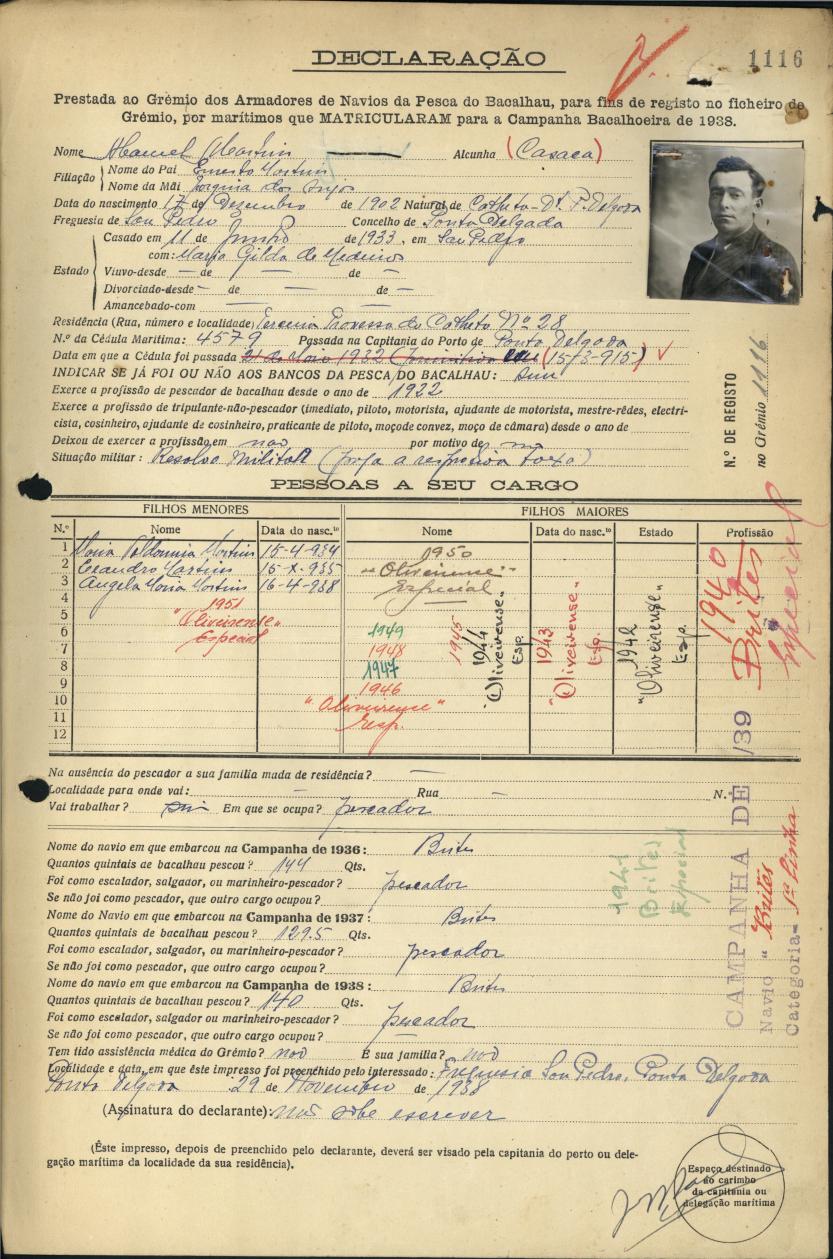 DECLARAÇÃO
1116
Prestada ao Grémio dos Armadores de Navios da Pesca do Bacalhau, para fins de registo no ficheiro do
Grémio, por marítimos que MATRICULARAM para a Campanha Bacalhoeira de 1938.
Nome Manuel Martins Alcunha (Casaca)
Filiação
Nome do Pai Ernesto Martins
Nome da Mãi dos Anjos
Data do nascimento 17 de Dezembro de 1902 Natural de Calheta - P. Delgada
Freguesia de San Pedro Concelho de Ponta Delgada
Estado
Casado em 11 de Junho de 1933, em San Pedro
com: Maria Gilda de Medeiros
Viuvo-desde — de — de —
Divorciado-desde — de — de —
Amancebado-com —
Residência (Rua, número e localidade) Terceira Travessa da Calheta Nº 28
N.º da Cédula Marítima: 4579 Passada na Capitania do Porto de Ponta Delgada
Data em que a Cédula foi passada 21 de Maio 1932 (1573-915)
INDICAR SE JÁ FOI OU NÃO AOS BANCOS DA PESCA DO BACALHAU: sim
Exerce a profissão de pescador de bacalhau desde o ano de 1922
Exerce a profissão de tripulante-não-pescador (imediato, piloto, motorista, ajudante de motorista, mestre-rêdes, electri-
cista, cosinheiro, ajudante de cosinheiro, praticante de piloto, moço de convez, moço de câmara) desde o ano de
Deixou de exercer a profissão em nao por motivo de
Situação militar: Militar (paga a respectiva taxa)
N.º DE REGISTO
no Grémio 1116
PESSOAS A SEU CARGO
FILHOS MENORES FILHOS MAIORES
N.º Nome Data do nasc.to Nome Data do nasc.to Estado Profissão
1 Maria Martins 15-4-934
2 Leandro Martins 15-X-935
3 Angela Maria Martins 16-4-938
4
5
6
7
8
9
10
11
12
1950
"Oliveirense"
Especial
1951
"Oliveirense"
Especial
1949
1948
1947
1946
"Oliveirense"
Esp.
1945
1944
"Oliveirense"
Esp.
1943
"Oliveirense"
Esp.
1942
"Oliveirense"
Esp.
1940
Brites
Especial
Na ausência do pescador a sua familia muda de residência? —
Localidade para onde vai: — Rua — N.º
Vai trabalhar? sim Em que se ocupa? pescador
Nome do navio em que embarcou na Campanha de 1936: Brites
Quantos quintais de bacalhau pescou? 144 Qts.
Foi como escalador, salgador, ou marinheiro-pescador? pescador
Se não foi como pescador, que outro cargo ocupou?
Nome do Navio em que embarcou na Campanha de 1937: Brites
Quantos quintais de bacalhau pescou? 129.5 Qts.
Foi como escalador, salgador, ou marinheiro-pescador? pescador
Se não foi como pescador, que outro cargo ocupou?
Nome do navio em que embarcou na Campanha de 1938: Brites
Quantos quintais de bacalhau pescou? 140 Qts.
Foi como escalador, salgador ou marinheiro-pescador? pescador
Se não foi como pescador, que outro cargo ocupou? —
Tem tido assistência médica do Grémio? não E sua familia? não
Localidade e data, em que êste impresso foi preenchido pelo interessado: Freguesia San Pedro, Ponta Delgada
Ponta Delgada 29 de Novembro de 1938
(Assinatura do declarante): não sabe escrever
1941
Brites
Especial
CAMPANHA DE /39
Navio "Brites
Categoria- 1ª linha
(Êste impresso, depois de preenchido pelo declarante, deverá ser visado pela capitania do porto ou dele-
gação marítima da localidade da sua residência).
Espaço destinado
ao carimbo
da capitania ou
delegação marítima